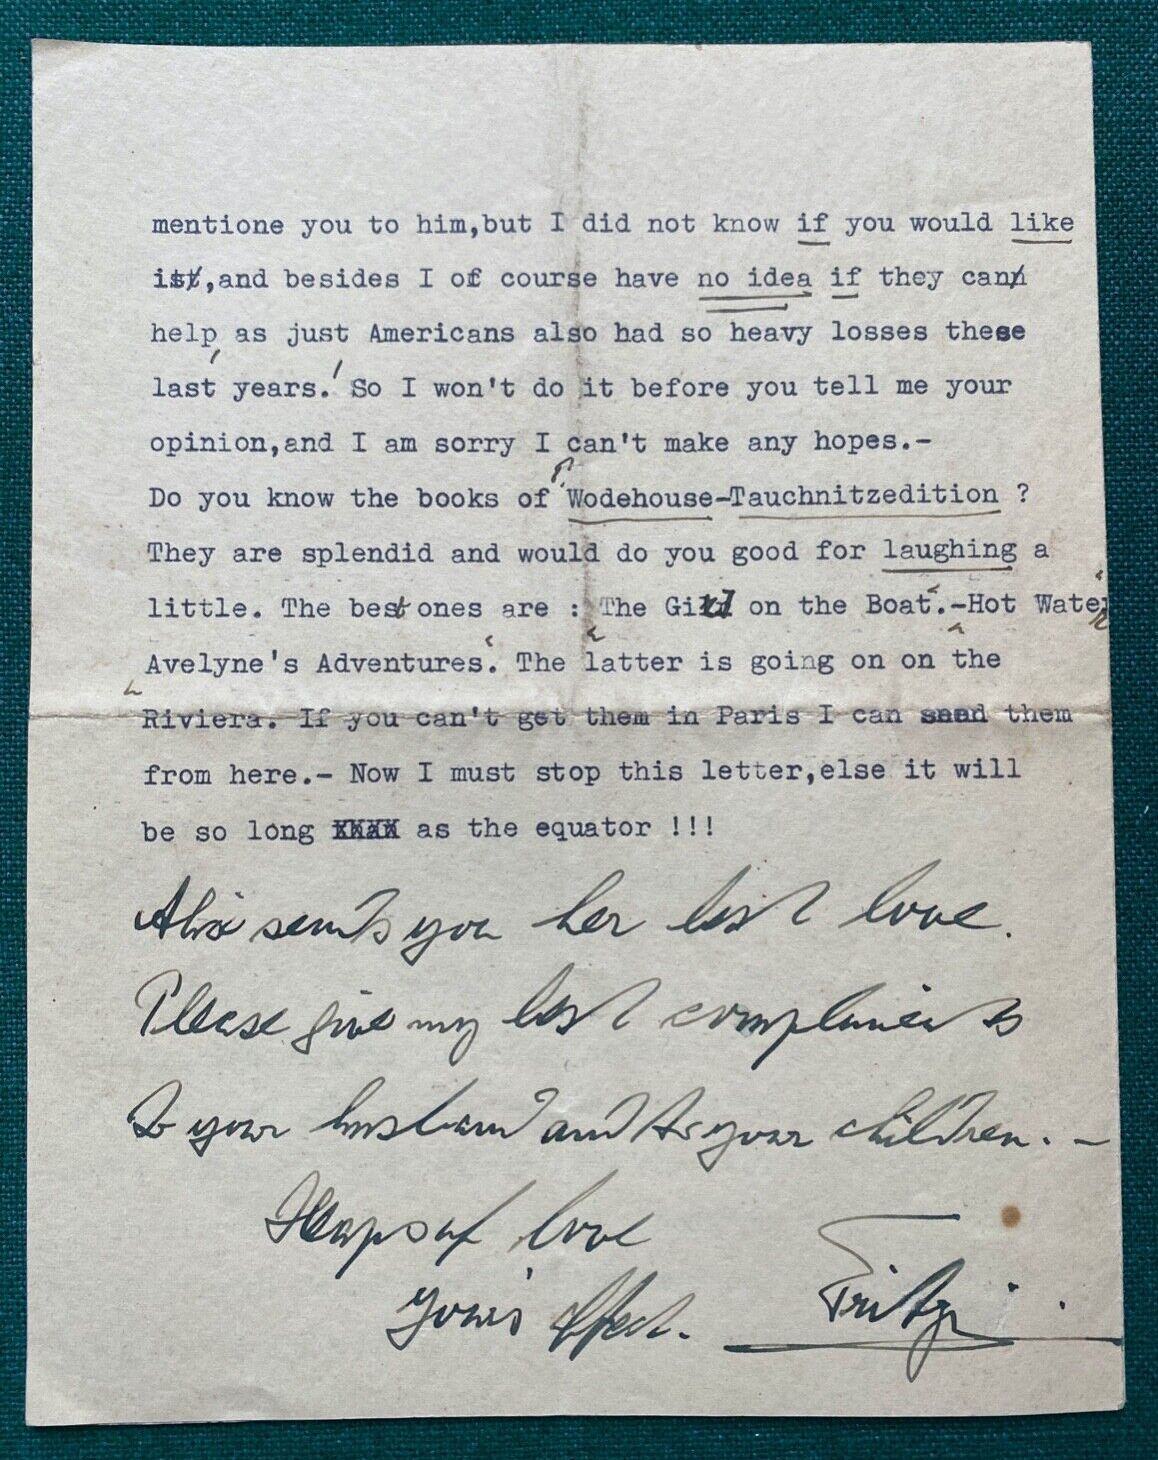 mentione you to him,but I did not know if you would like
it,and besides I of course have no idea if they can
help as just Americans also had so heavy losses these
last years.' So I won't do it before you tell me your
opinion,and I am sorry I can't make any hopes.-
Do you know the books of P. Wodehouse-Tauchnitzedition ?
They are splendid and would do you good for laughing a
little. The best ones are : "The Girl on the Boat".-"Hot Water"
"Avelyne's Adventures". The latter is going on on the
Riviera. If you can't get them in Paris I can send them
from here.- Now I must stop this letter,else it will
be so long as the equator !!!
Alix sends you her best love.
Please give my best compliments
to your husband and to your children. -
Heaps of love
your's affect. Fritzi.